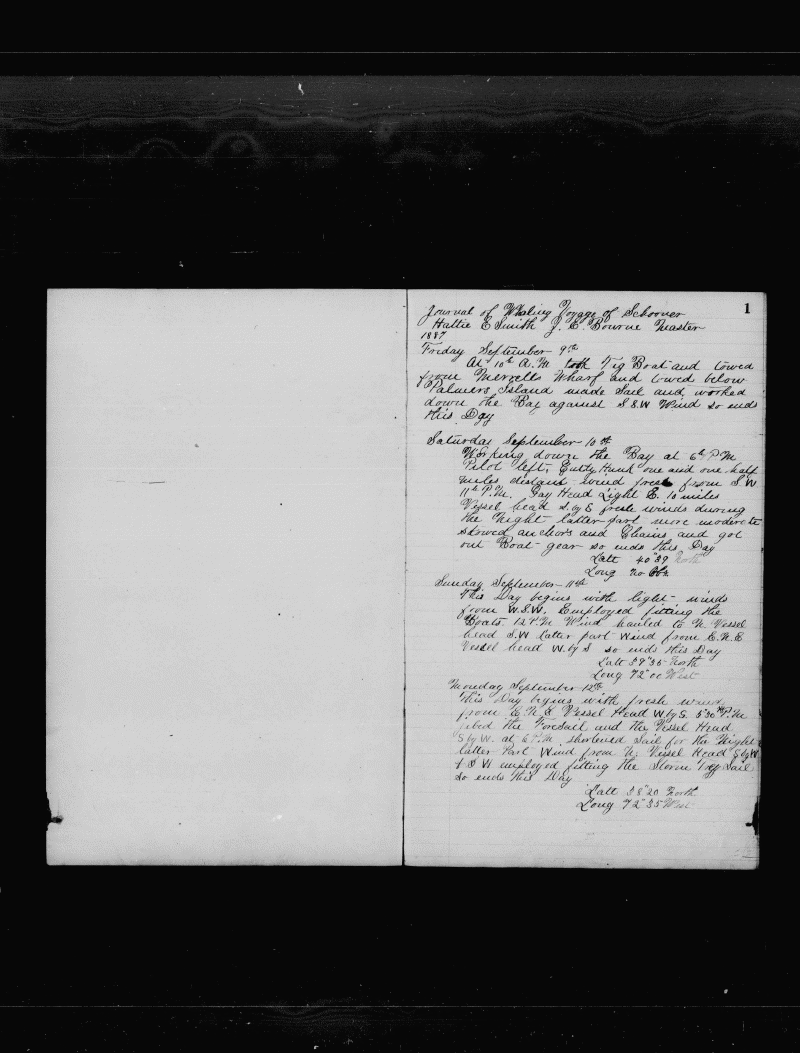 1
Journal of Whaling Voyage of Schooner
Hattie E Smith J. E. Bourne Master
1887
Friday September 9th
At 10th A.M. took Tig Boat and towed
from Merrells Wharf and towed below
Palmers Island made Sail and worked
down the Bay against S S.W Wind so ends
this Day
Saturday September 10th
Working down the Bay at 6th P.M
Pilot left, Cutty Hunk one and one half
miles distant wind fresh from S W
11th P.M. Gay Head Light E. 10 miles
Vessel head S. by E fresh winds during
the Night latter part more moderate
stowed anchors and Chains and got
out Boat gear so ends this Day
Latt 40"39 North
Long no Obs
Sunday September 11th
This Day begins with light winds
from W.S.W. Employed fitting the
Boats 12 P.M Wind hauled to N Vessel
head S.W latter part wind from E.N.E
Vessel head W. by S so ends this Day
Latt 39"35 North
Long 72"00 West
Monday September 12th
This Day begins with fresh winds
from E.N.E Vessel Head W by S. 5"30 P.M
jibed the Foresail and the Vessel Head
S by W. at 6 P.M. shortened Sail for the Night
latter Part Wind from N. Vessel Head S by W
& S W employed fitting the Storm Sail
so ends this Day
Latt 38"20 North
Long 72"35 West